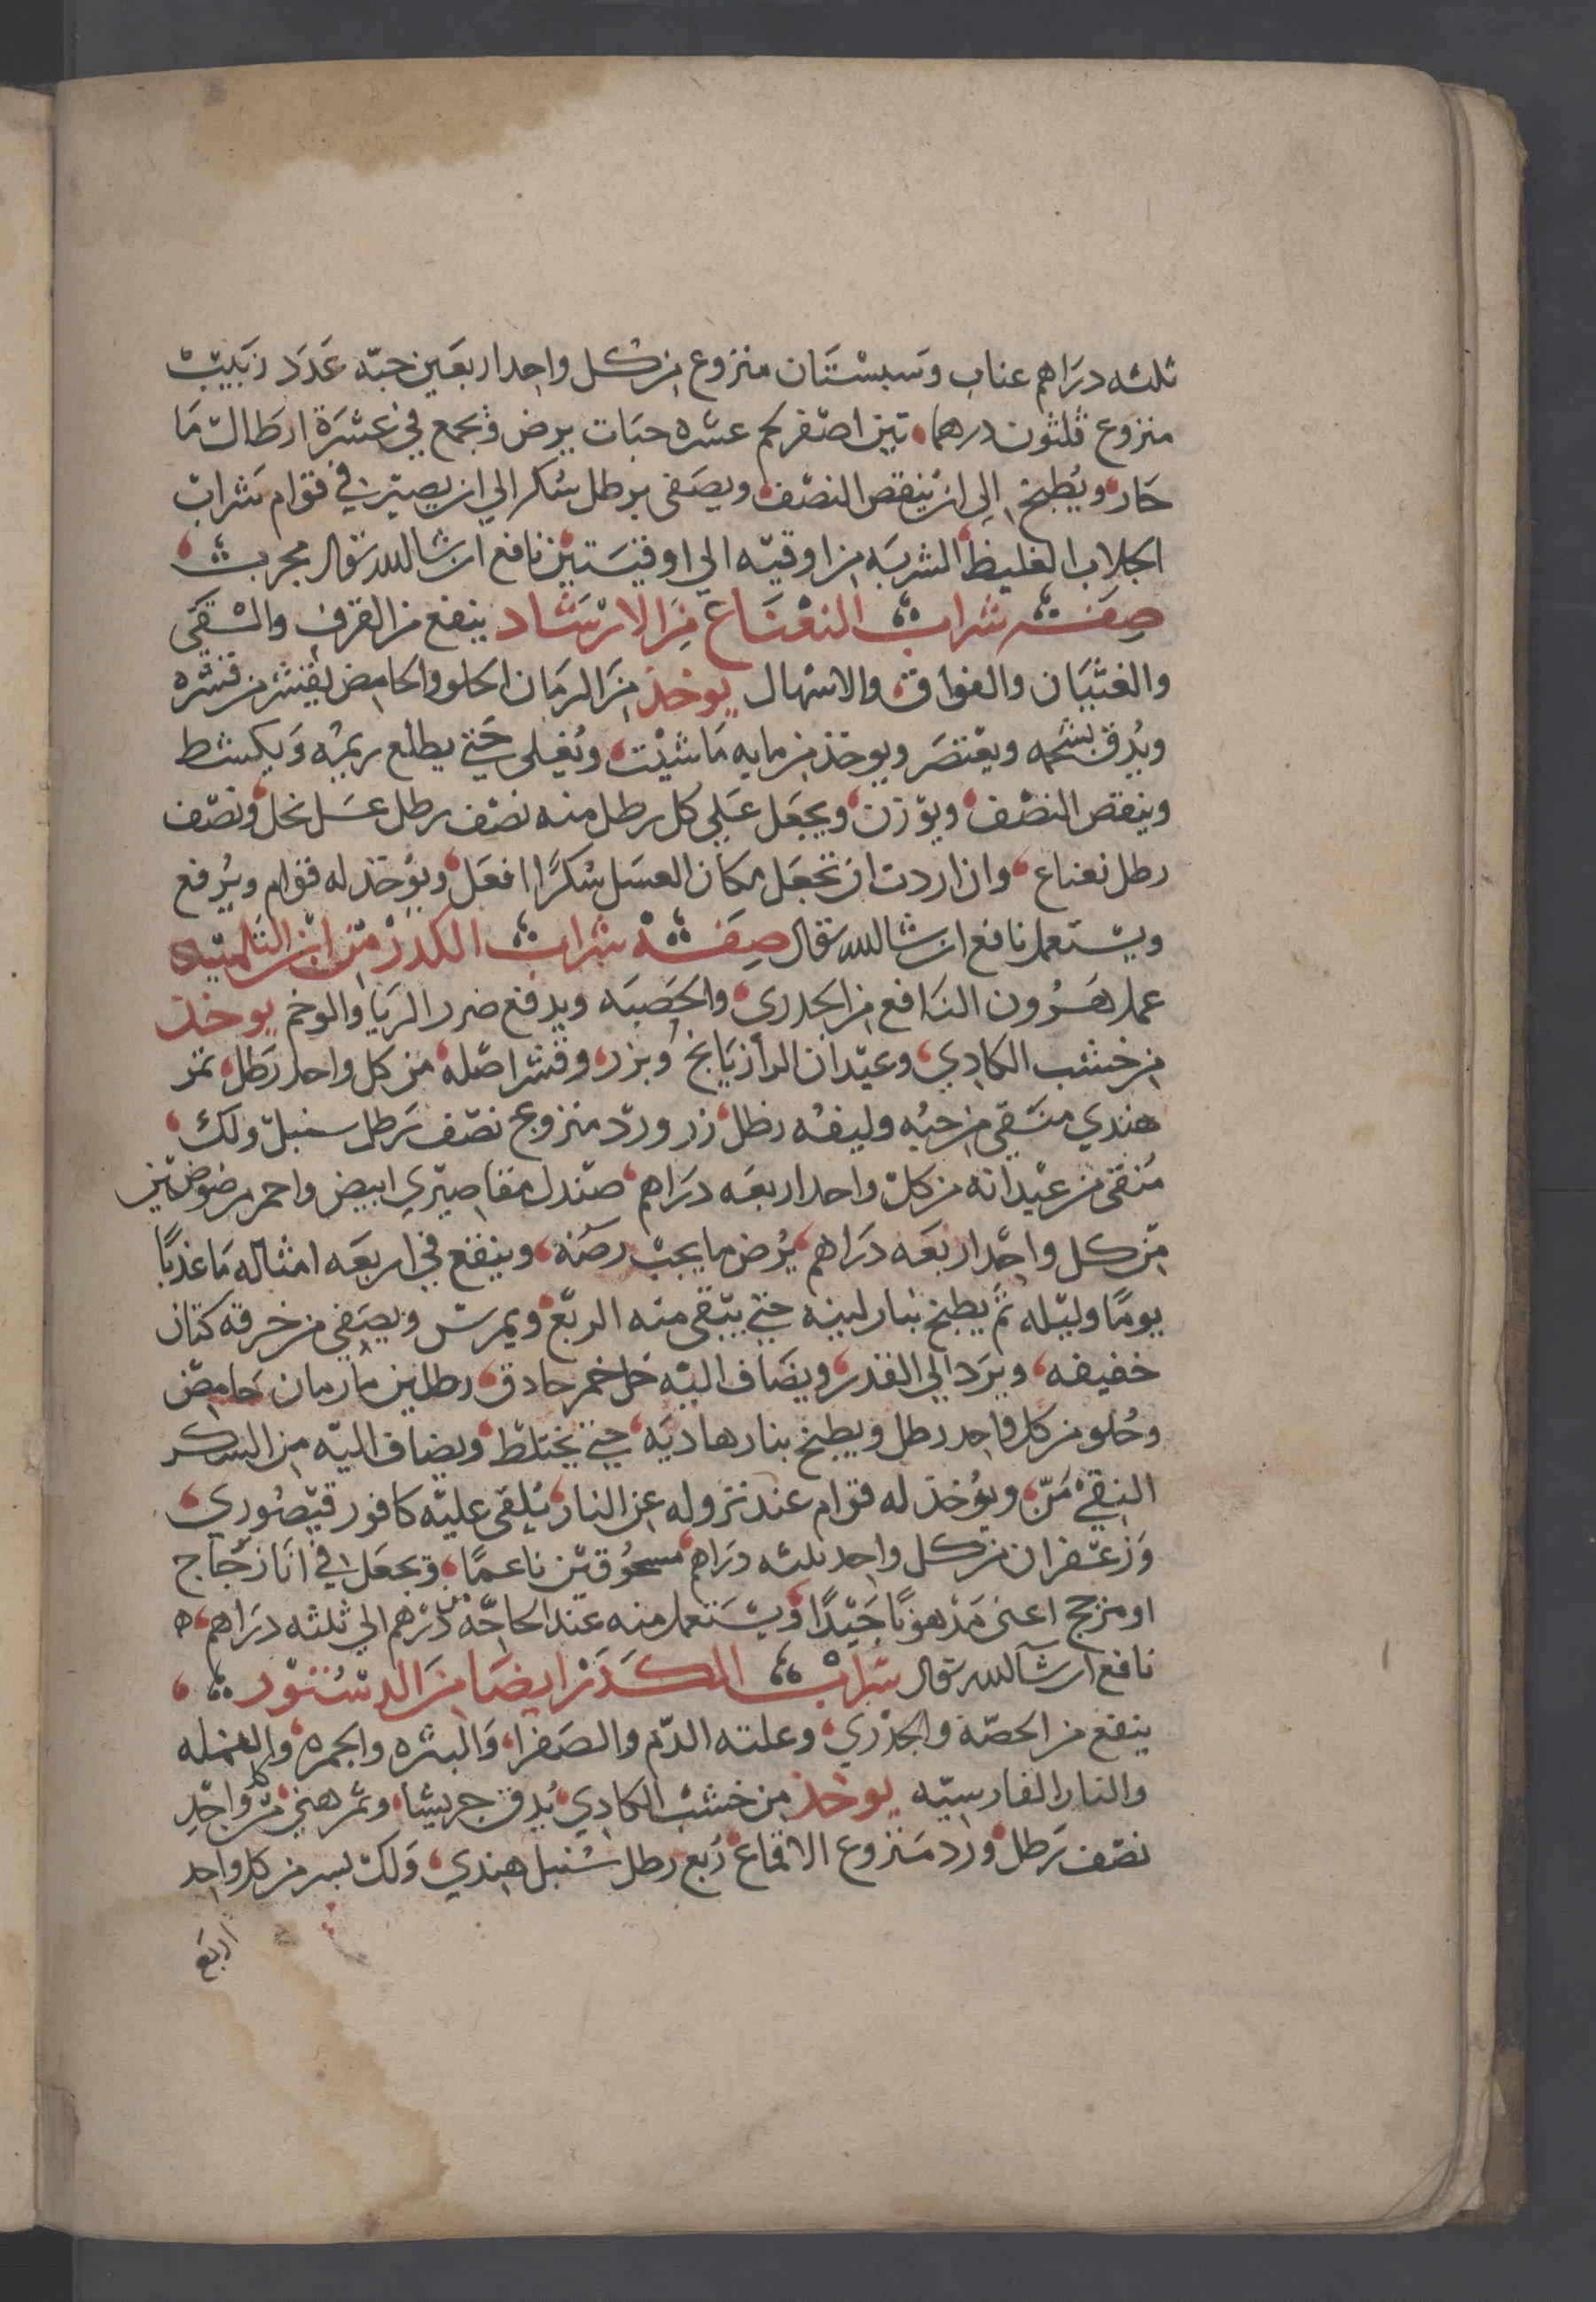 ثلثه دراهم عناب وسبستان منزوع من كل واحد اربعين حبّه عدد زبيب
منزوع ثلثون درهما تين اصفر لحم عشره حبات يرض ويجمع في عشرة ارطال ما
حار ويطبخ الي ان ينقص النصف ويصفى برطل سكر الي ان يصير في قوام شراب
الجلاب الغليظ الشربه من اوقيه الي اوقيتين نافع ان شا الله تعالى مجرب
صفة شراب النعناع من الارشاد ينفع من القرف والقى
والغثيان والفواق والاسهال يوخذ من الرمان الحلو والحامض يقشر من قشره
ويدق بشحمه ويعتصر ويوخذ من مايه ما شيت ويغلى حتي يطلع ريمه ويكشط
وينقص النصف ويوزن ويجعل علي كل رطل منه نصف رطل عسل نحل ونصف
رطل نعناع وان اردت ان تجعل مكان العسل سكرًا افعل ويوخذ له قوام ويرفع
ويستعمل نافع ان شا الله تعالى صفة شراب الكدر من ابن التلميذ
عمل هرون النافع من الجدري والحصبه ويدفع ضرر الربا والوخم يوخذ
من خشب الكادي وعيدان الرازيانج وبزره وقشر اصله من كل واحد رطل تمر
هندي منقي من حبه وليفه رطل زر ورد منزوع نصف رطل سنبل ولك
منقى من عيدانه من كل واحد اربعه دراهم صندل مقاصيري ابيض واحمر مرضوضين
من كل واحد اربعه دراهم يرض ما يجب رضه وينقع في اربعه امثاله ما عذبًا
يومًا وليله ثم يطبخ بنار لينه حتي يبقى منه الربع ويمرس ويصفي من خرقه كتان
خفيفه ويرد الي القدر ويضاف اليه خل خمر حادق رطلين ما رمان حامض
وحلو من كل واحد رطل ويطبخ بنار هاديه حتي يختلط ويضاف اليه من السكر
النقي من ويوخذ له قوام عند نزوله عن النار يلقى عليه كافور قيصوري
وزعفران من كل واحد ثلثه دراهم مسحوقين ناعمًا ويجعل في انا زجاج
او مزجج اعنى مدهونًا جيدًا ويستعمل منه عند الحاجه من درهم الي ثلثه دراهم
نافع ان شا الله تعالى شراب الكدر ايضا من الدستور
ينفع من الحصبة والجدري وعلته الدم والصفرا والبشره والجمره والنمله
والنار الفارسيه يوخذ من خشب الكادي يدق جريشا وتمر هندي من كل واحد
نصف رطل ورد منزوع الاقماع ربع رطل سنبل هندي ولك بسر من كل واحد
اربع